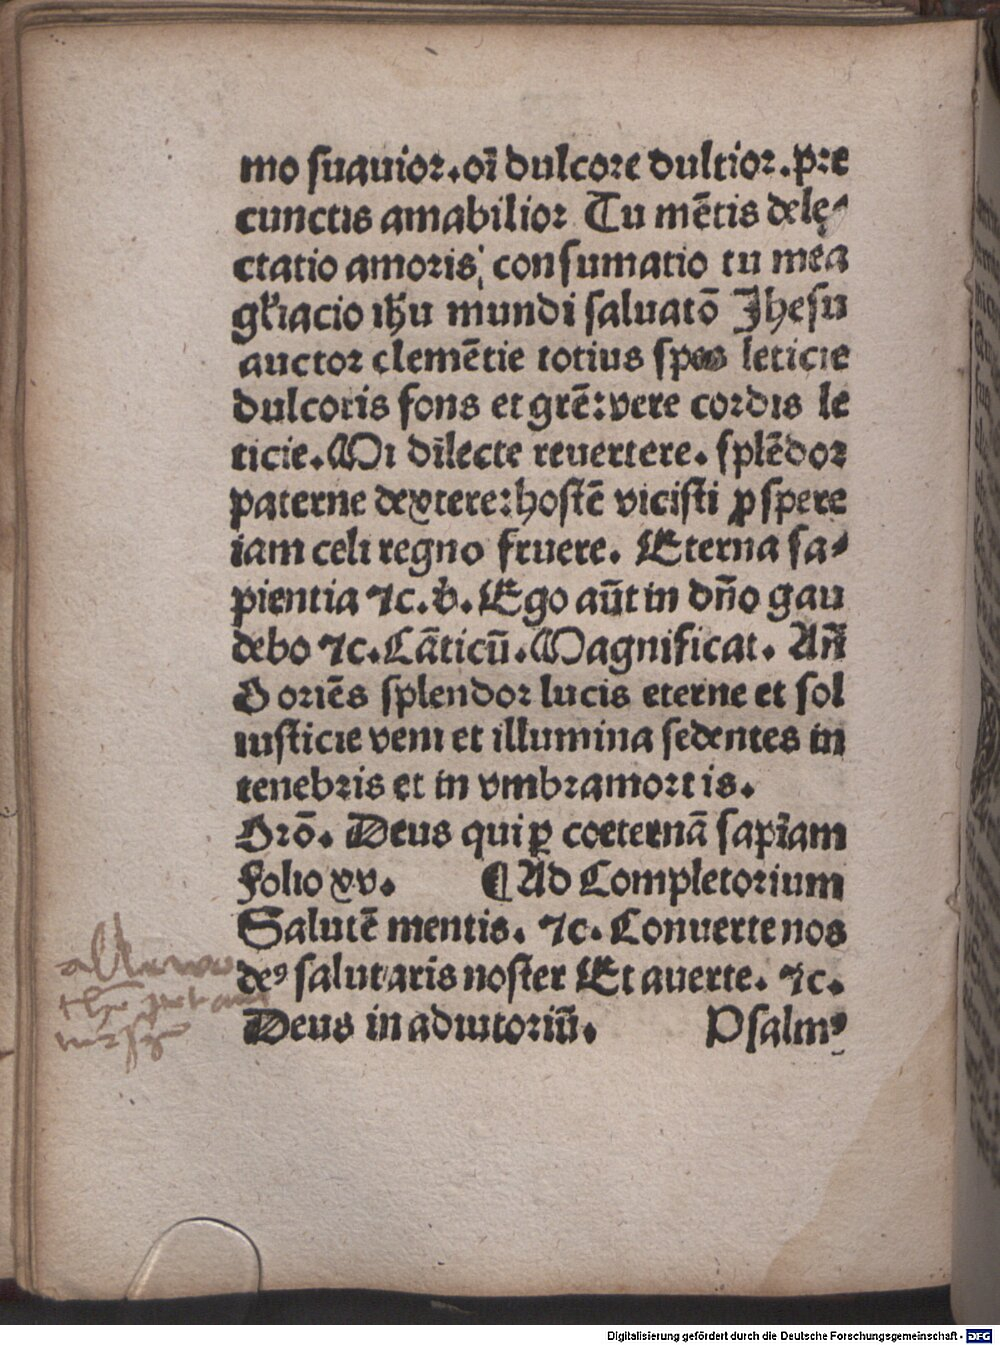 mo suauior.oı̄ dulcore dultior.pre
cunctis amabilior Tu mētis delę⸗
ctatio amoris consumatio tu mea
gl̄iacio ihū mundi saluatō Jhesu
auctor clemētie totius spes leticie
dulcoris fons et grē:vere cordis le
ticie.Mi dilecte reuertere. splēdor
paterne dextere:hostē vicisti ꝓspere
iam celi regno fruere. Eterna sa⸗
pientia ⁊c.v̾. Ego aūt in dn̄o gau
debo ⁊c.Cāticū.Magnificat. Añ
O oriēs splendor lucis eterne et sol
iusticie veni et illumina sedentes in
tenebris et in vmbramortis.
Orō. Deus qui ꝑ coeternā sapīam
Folio xv. ¶ Ad Completorium
Salutē mentis. ⁊c. Conuerte nos
deꝰ salutaris noster Et auerte. ⁊c.
Deus in adiutoriū. Psalmꝰ
Digitalisierung gefördert durch die Deutsche Forschungsgemeinschaft - DFG